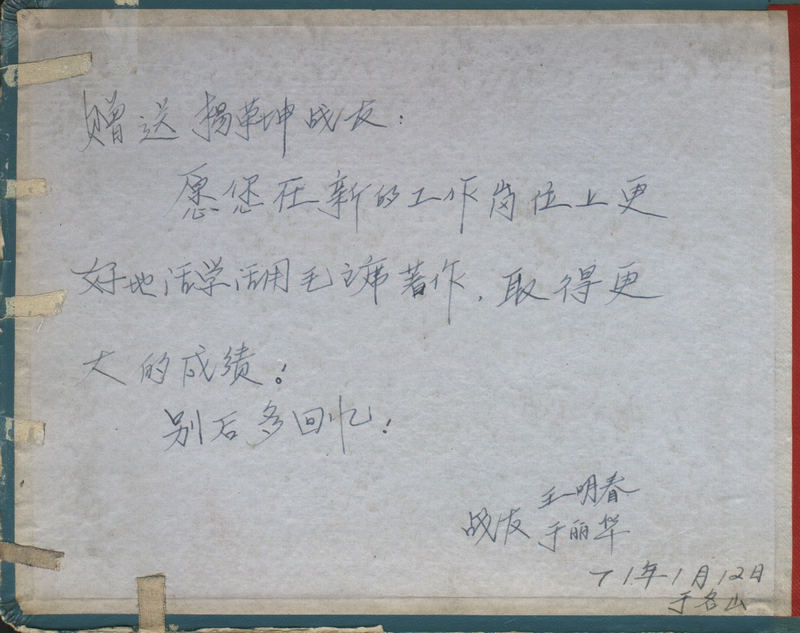 赠送 杨乾坤战友:
愿您在新的工作岗位上更
好地活学活用毛主席著作,取得更
大的成绩!
别后多回忆!
战友 王明春
于丽华
71年1月12日
于名山